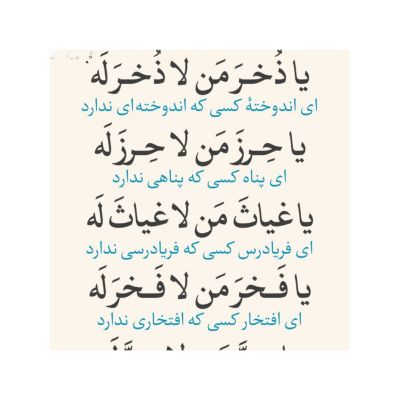 یا ذُخـرَ مَن لا ذُخـرَ لَه
ای اندوختهٔ کسی که اندوخته‌ای ندارد
یا حِـرزَ مَن لا حِـرزَ لَه
ای پناه کسی که پناهی ندارد
یا غیاثَ مَن لا غیاثَ لَه
ای فریادرس کسی که فریادرسی ندارد
یا فَـخرَ مَن لا فَـخرَ لَه
ای افتخار کسی که افتخاری ندارد